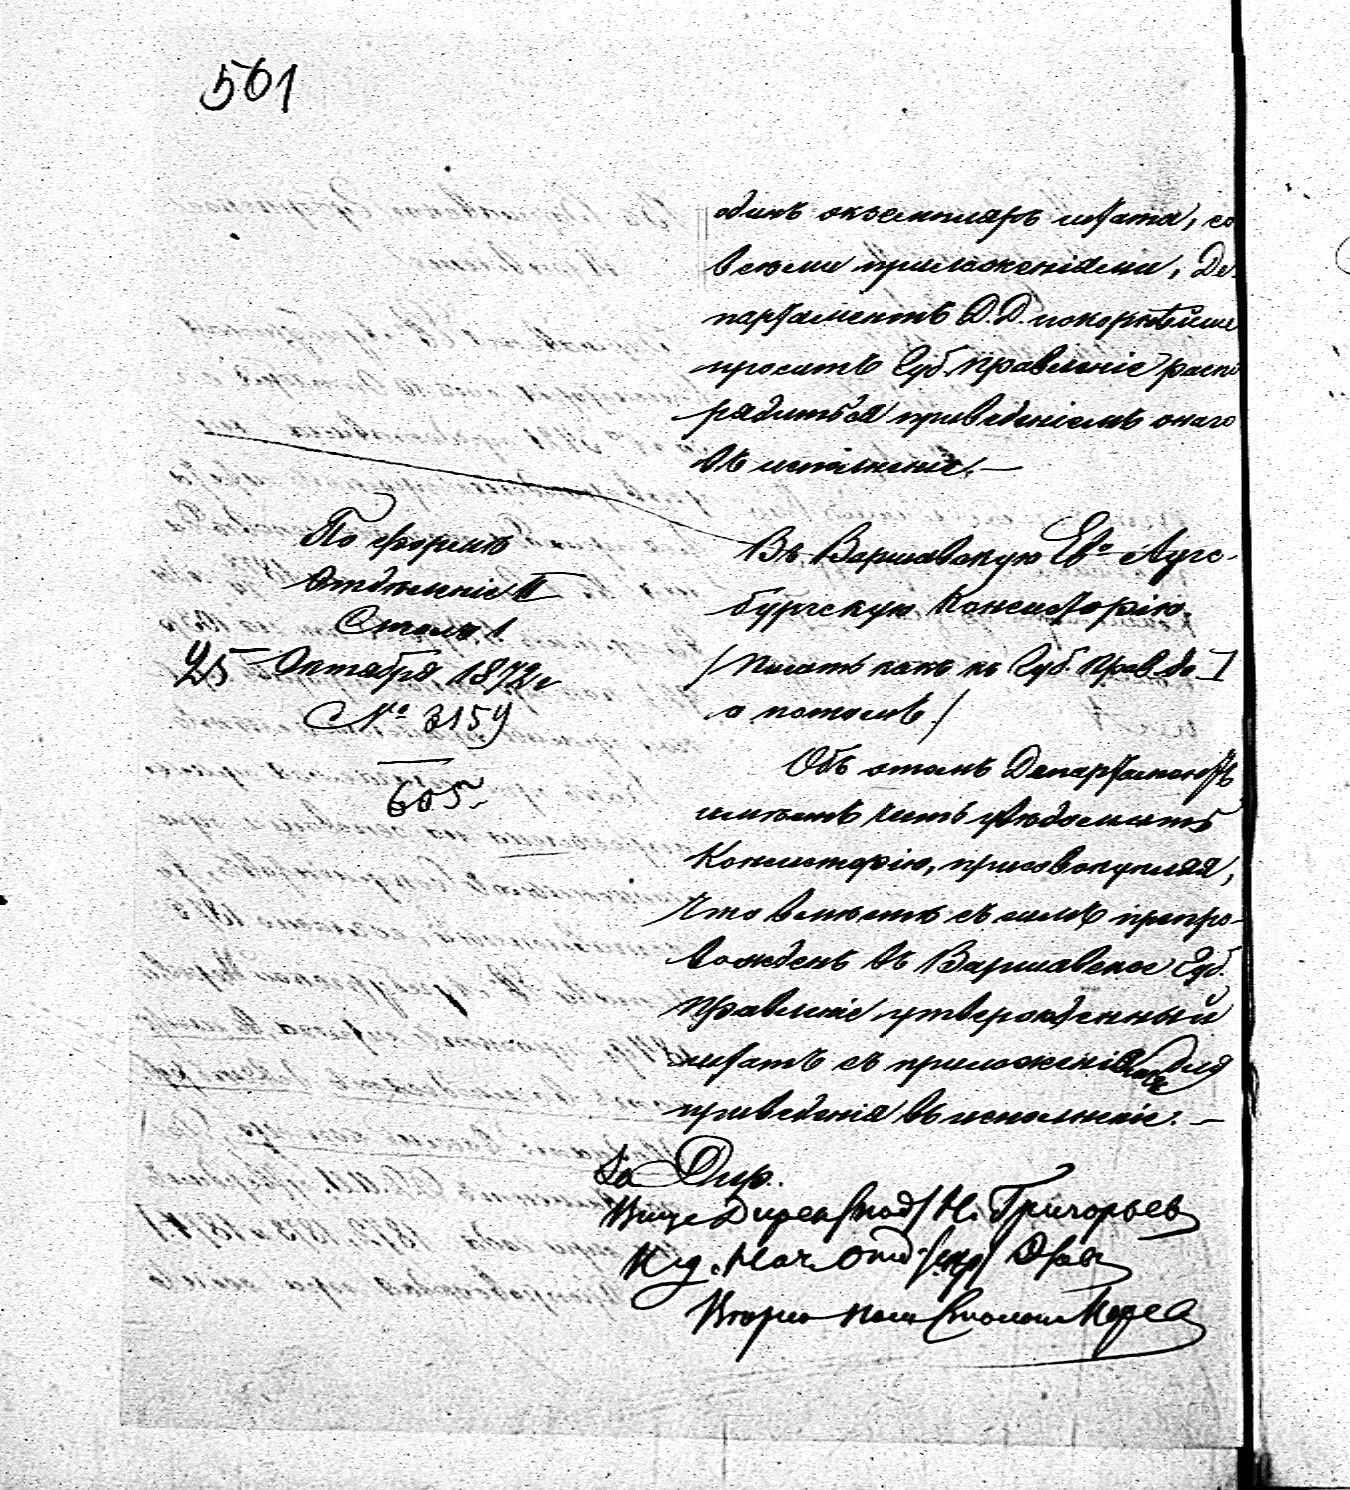 501
одинъ экземпляръ штата, со
всеми приложеніями, Де-
партаментъ Д.Д. покорнѣйше
проситъ Губ. Правленіе распо
рядиться приведеніемъ онаго
въ исполненіе. —
По формѣ
Отдѣленіе II
Столъ 1.
25 Октября 1872 г
№ 3159
605
Въ Варшавскую Ев° Аугс-
бургскую Консисторію.
/ Писать какъ къ Губ. Правл. до
а потомъ /
Объ этомъ Департаментъ
имѣетъ честь увѣдомить
Консисторію, присовокупляя,
что вмѣстѣ съ симъ препро-
вожденъ въ Варшавское Губ.
Правленіе утвержденный
штатъ съ приложеніями для
приведенія въ исполненіе. —
За Дир.
Вице Директ /под/ Н. Григорьев
И.д. Нач Отд